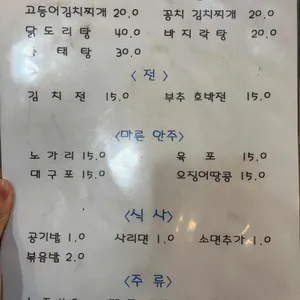 고등어김치찌개 20.0 꽁치 김치찌개 20.0
닭도리탕 40.0 바지락탕 20.0
동태탕 30.0
<전>
김치전 15.0 부추 호박전 15.0
<마른 안주>
노가리 15.0 육포 15.0
대구포 15.0 오징어땅콩 15.0
<식사>
공기밥 1.0 사리면 1.0 소면추가 1.0
볶음밥 2.0
<주류>